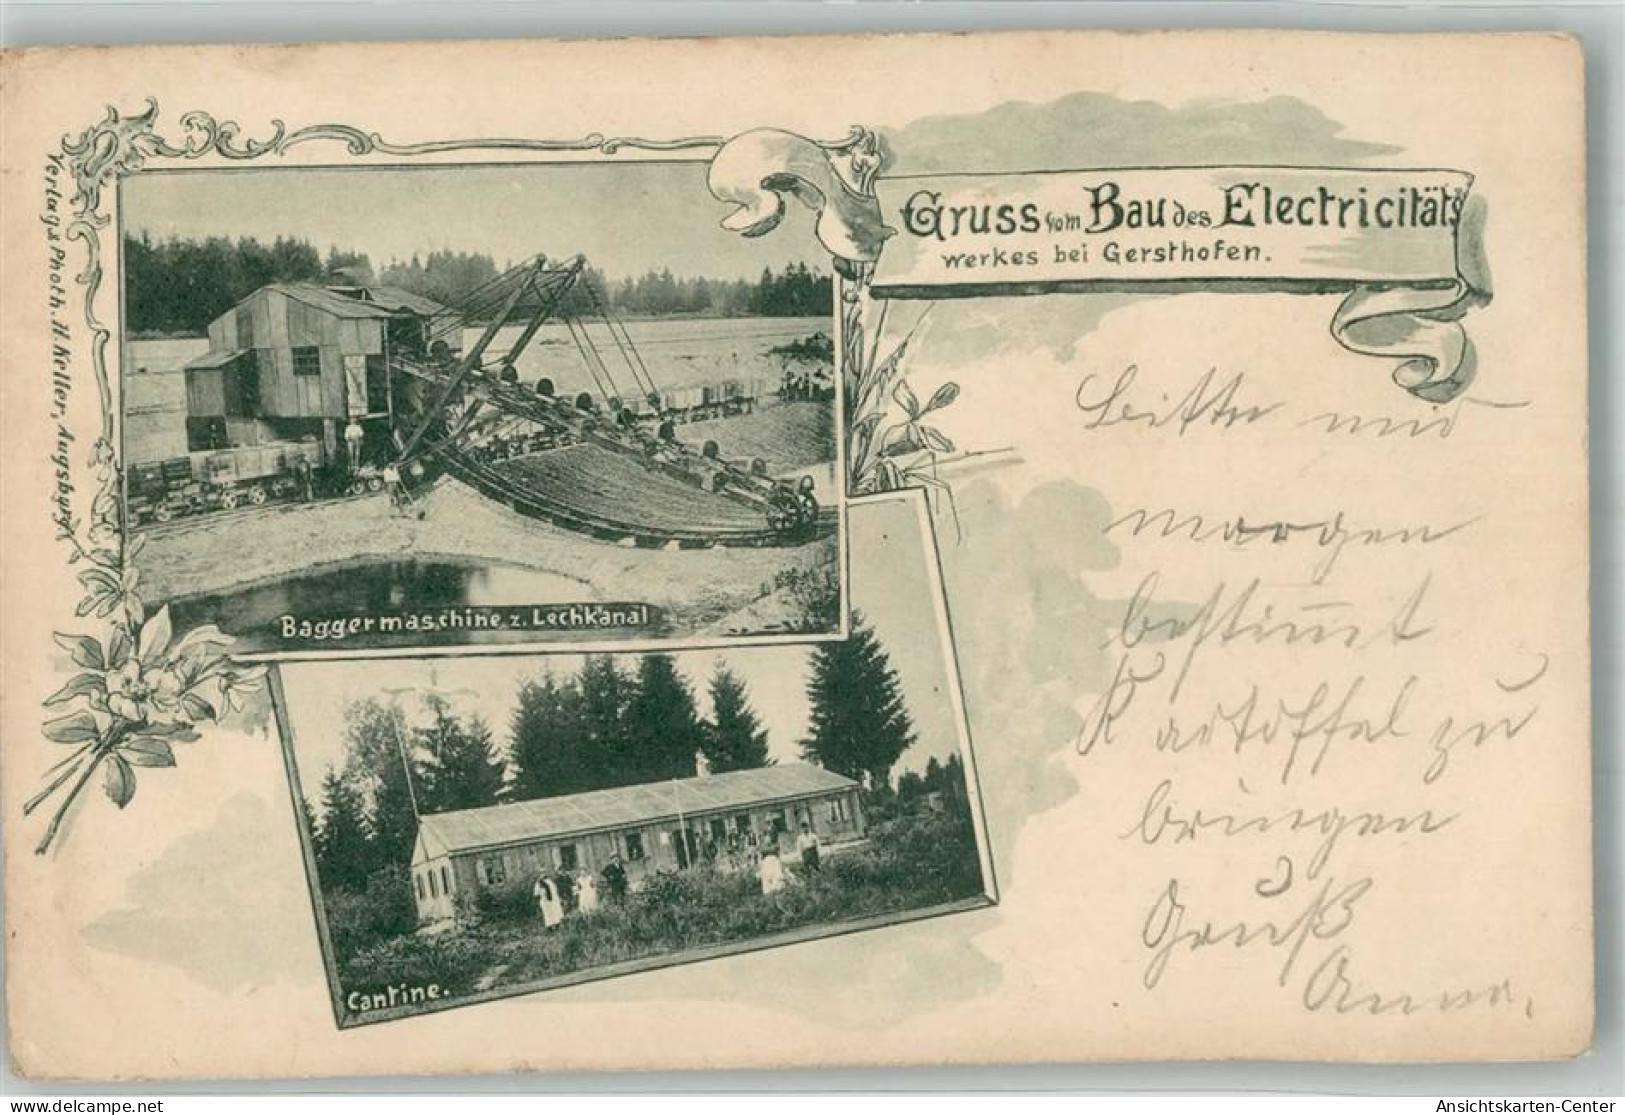 Gruss vom Bau des Electricitäts
werkes bei Gersthofen.
Verlag & Photh. H. Keller, Augsburg.
Baggermaschine z. Lechkanal
Cantine.
Bitte mir
morgen
bestimmt
Kartoffel zu
bringen
Gruß
Anna.
delcampe.net
Ansichtskarten-Center